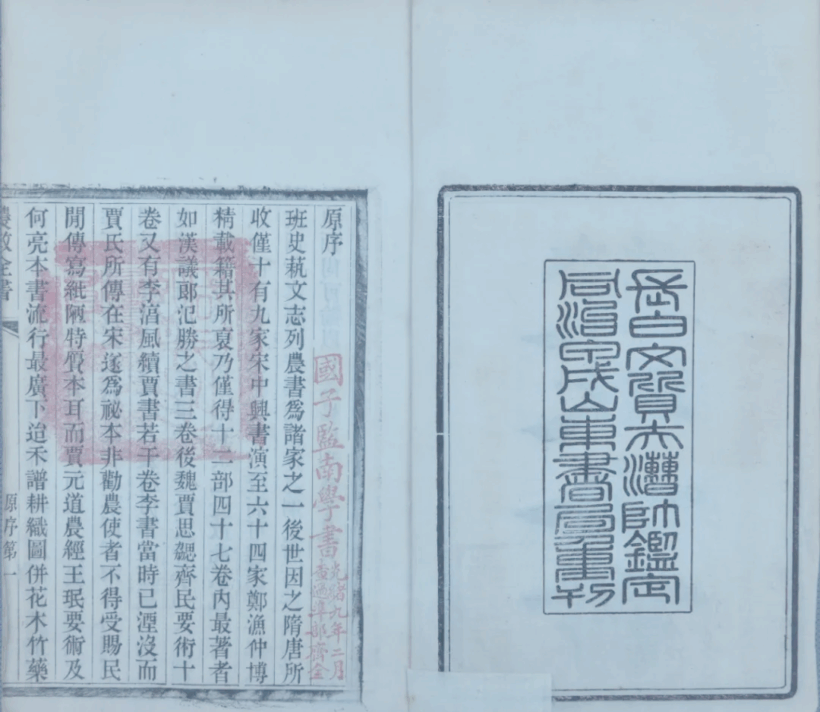 長白文質夫漕帥鑑定
同治甲戌山東書局重刊
原序
班史萟文志列農書爲諸家之一後世因之隋唐所
收僅十有九家宋中興書演至六十四家鄭漁仲博
精載籍其所裒乃僅得十二部四十七卷內最著者
如漢議郞氾勝之書三卷後魏賈思勰齊民要術十
卷又有李湻風續賈書若干卷李書當時已湮沒而
賈氏所傳在宋遂爲祕本非勸農使者不得受賜民
閒傳寫紙陋特贋本耳而賈元道農經王珉要術及
何亮本書流行最廣下迨禾譜耕織圖倂花木竹藥
農政全書
原序第一
國子監南學書
光緒九年二月
查過準部齊全